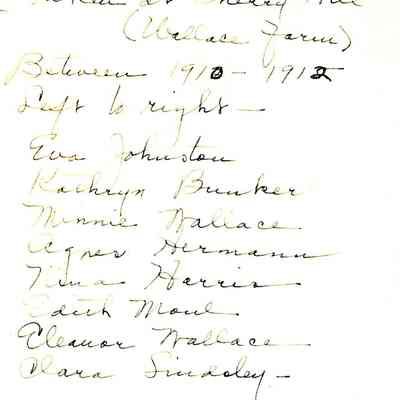 Taken at Cherry Hill
(Wallace Farm)
Between 1910 - 1912
Left to right -
Eva Johnston
Kathryn Bunker
Minnie Wallace
Agnes Hermann
Nina Harris
Edith Moul
Eleanor Wallace
Clara Lindsley -